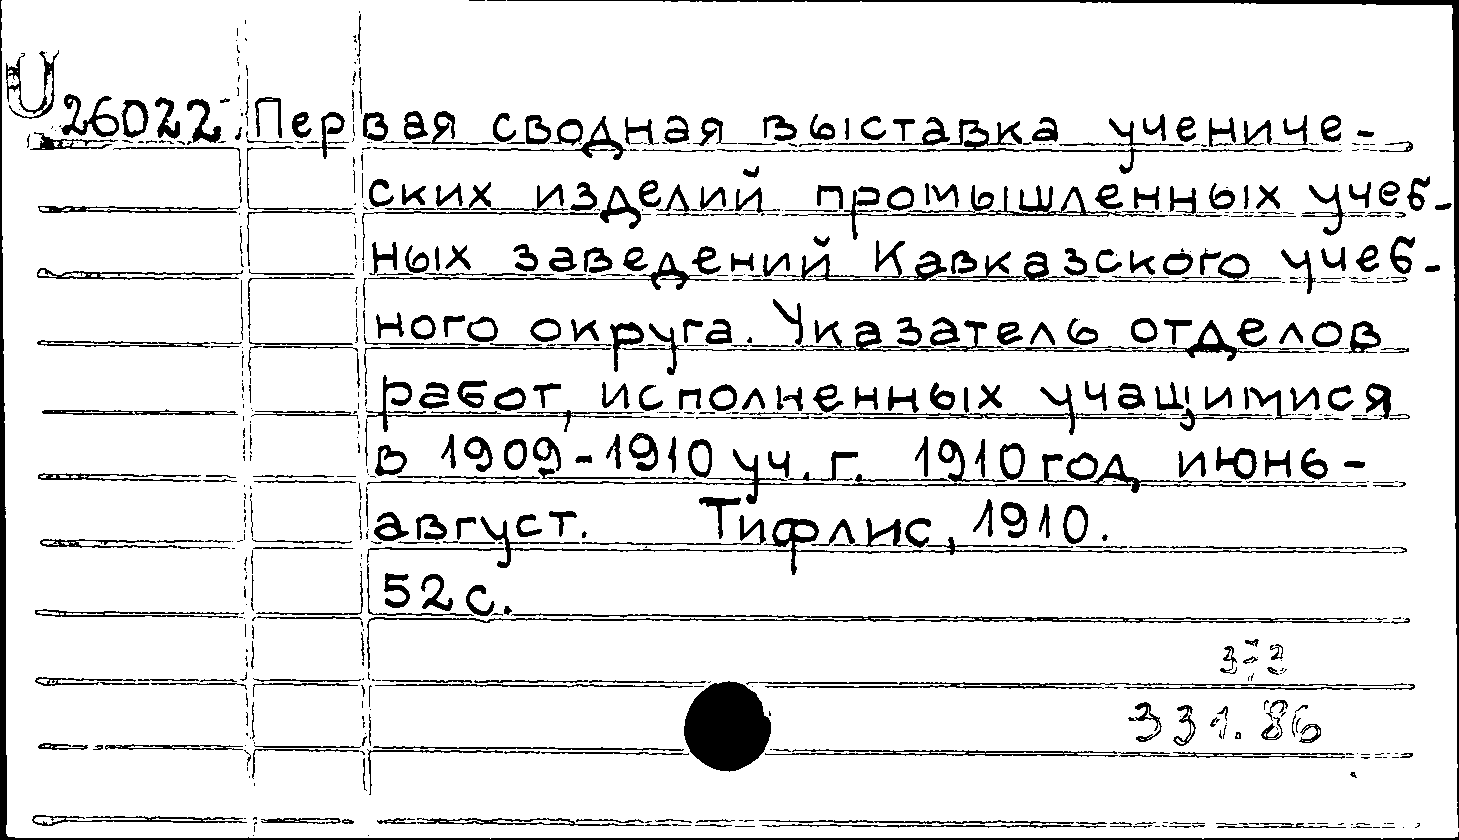 U 26022. Первая сводная выставка учениче-
ских изделий промышленных учеб-
ных заведений Кавказского учеб-
ного округа. Указатель отделов
работ, исполненных учащимися
в 1909-1910 уч. г. 1910 год, июнь-
август. Тифлис, 1910.
52 с.
331.86